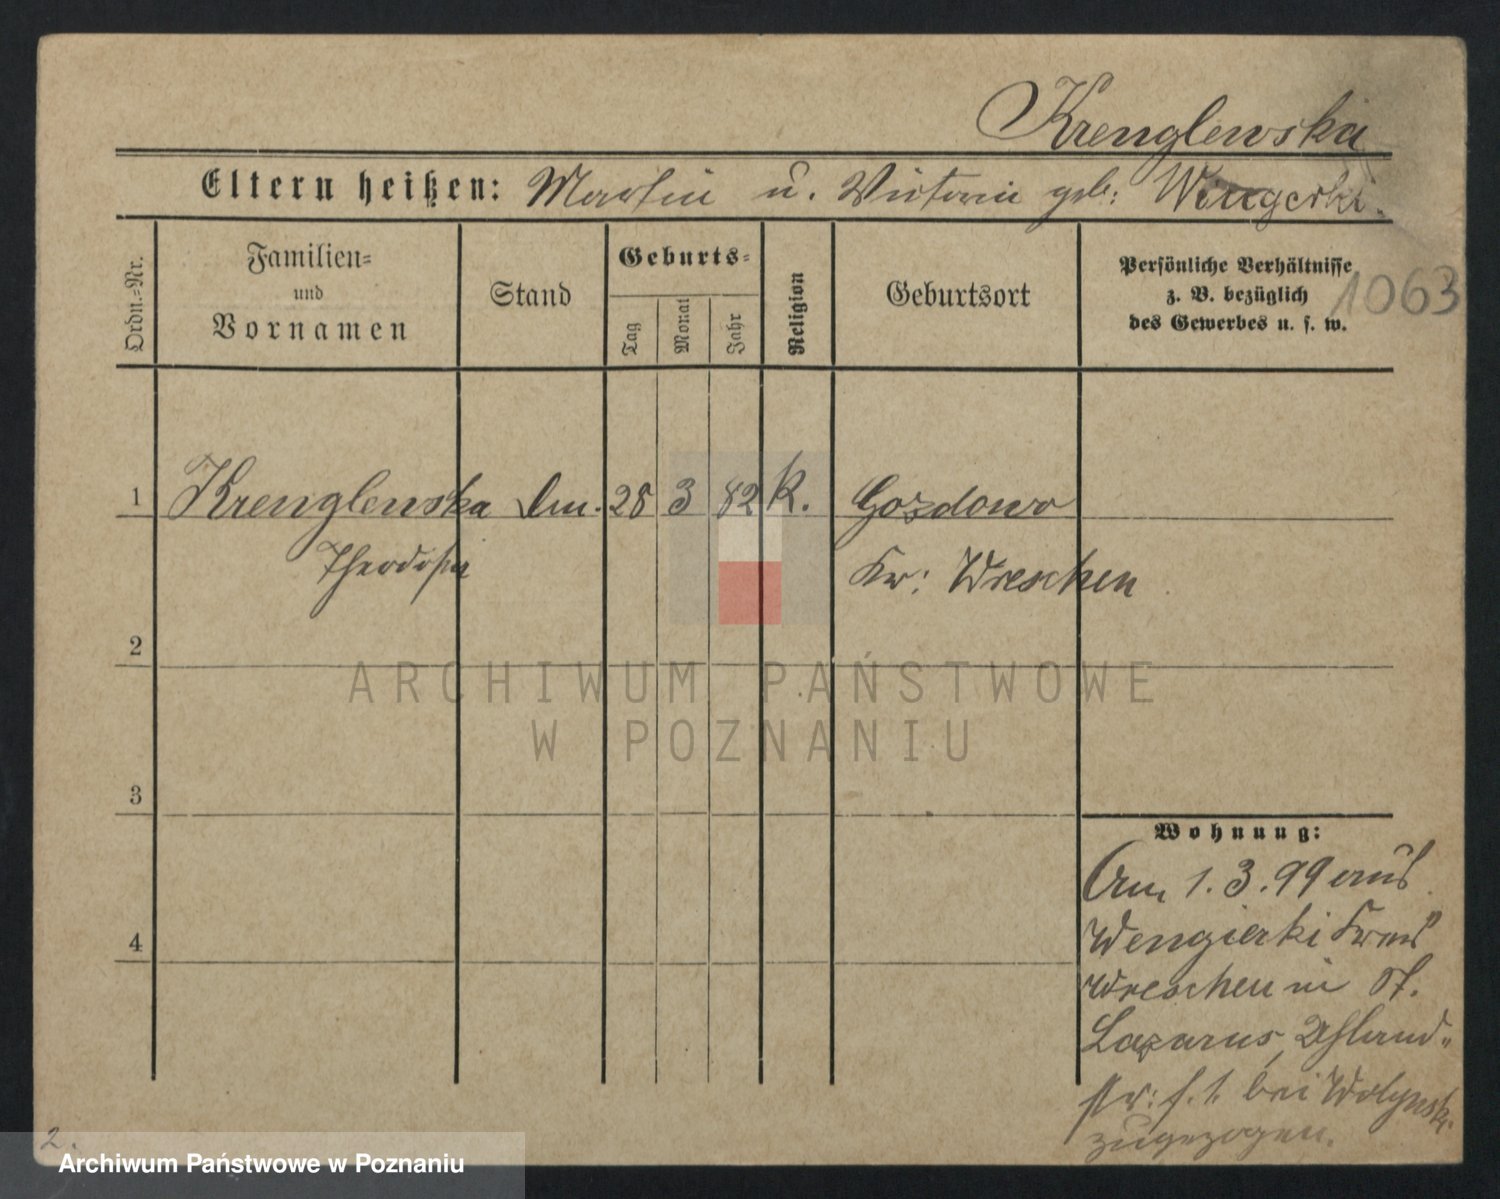 Krenglewska
Eltern heißen: Martin u. Victoria geb: Wengerki.
Ordn.-Nr.
Familien-
und
Vornamen
Stand
Geburts-
Tag
Monat
Jahr
Religion
Geburtsort
Persönliche Verhältnisse
z. B. bezüglich
des Gewerbes u. s. w.
1063
1 Krenglewska 28 3 82 K. Gozdowo
Theodosia Kr: Wreschen
2
3
4
Wohnung:
Am 1.3.99 aus
Wengierki Kreis
Wreschen in St.
Lazarus, Uhland-
str: bei Wolynski
zugezogen.
2.
ARCHIWUM PAŃSTWOWE
W POZNANIU
Archiwum Państwowe w Poznaniu